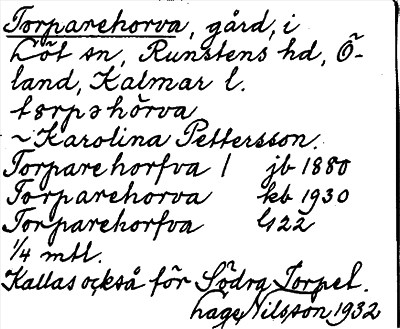 Torparehorva, gård, i
Löt sn, Runstens hd, Ö-
land, Kalmar l.
tɷrpəhòrva
~ Karolina Pettersson.
Torparehorfva 1 jb 1880
Torparehorva kb 1930
Torparehorfva G 122
1/4 mtl.
Kallas också för Södra Torpet.
Nilsson 1932